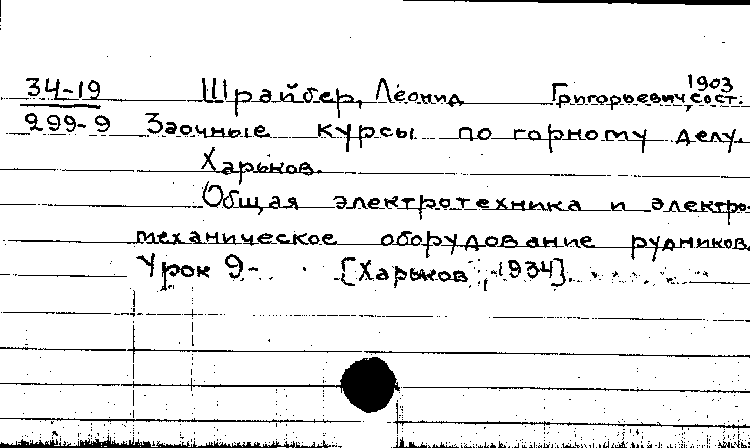 1903
34-19 Шрайбер, Леонид Григорьевич, сост.
299-9 Заочные курсы по горному делу.
Харьков.
Общая электротехника и электро-
механическое оборудование рудников.
Урок 9- [Харьков, 1934].